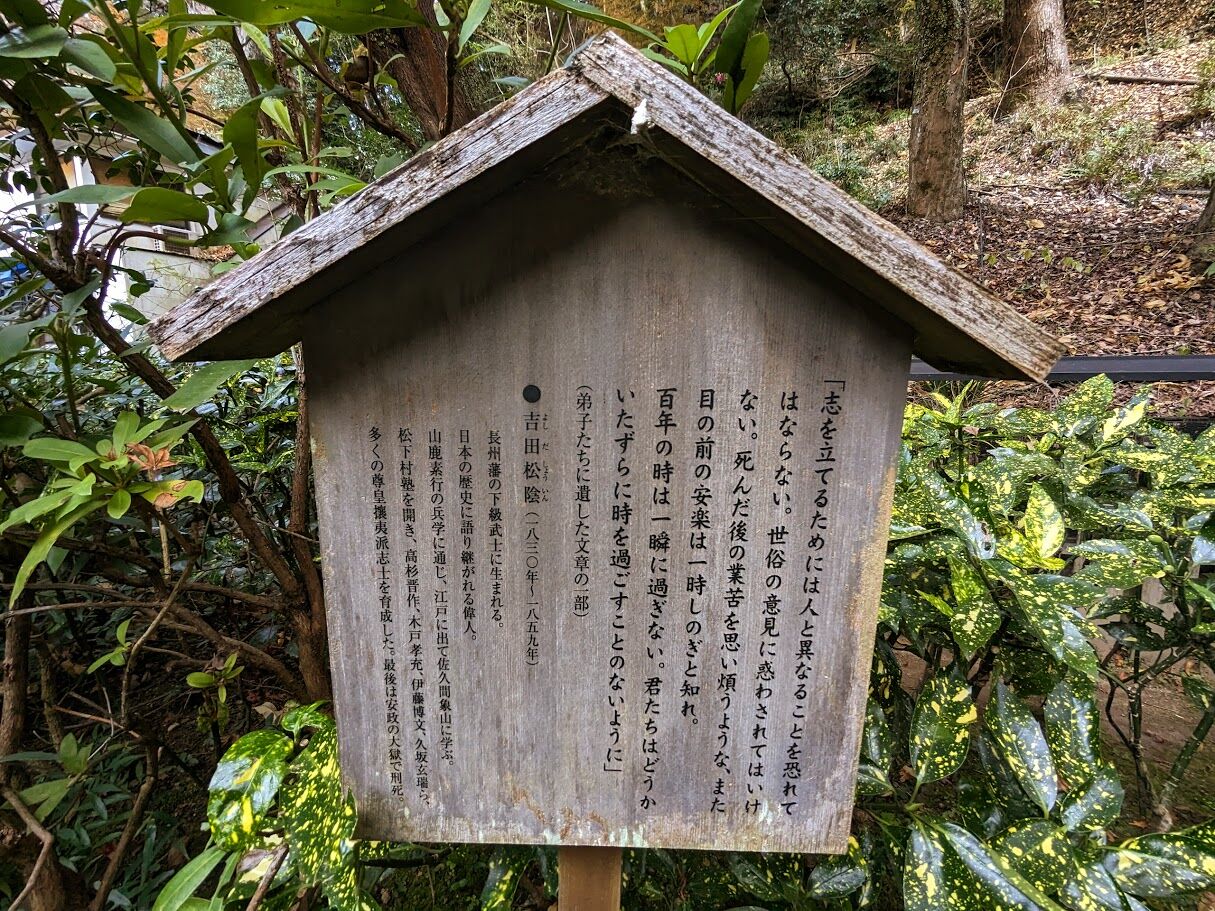 「志を立てるためには人と異なることを恐れて
はならない。世俗の意見に惑わされてはいけ
ない。死んだ後の業苦を思い煩うような、また
目の前の安楽は一時しのぎと知れ。
百年の時は一瞬に過ぎない。君たちはどうか
いたずらに時を過ごすことのないように」
（弟子たちに遺した文章の一部）
●吉田松陰（一八三〇年～一八五九年）
よしだしょういん
長州藩の下級武士に生まれる。
日本の歴史に語り継がれる偉人。
山鹿素行の兵学に通じ、江戸に出て佐久間象山に学ぶ。
松下村塾を開き、高杉晋作、木戸孝允、伊藤博文、久坂玄瑞ら、
多くの尊皇攘夷派志士を育成した。最後は安政の大獄で刑死。